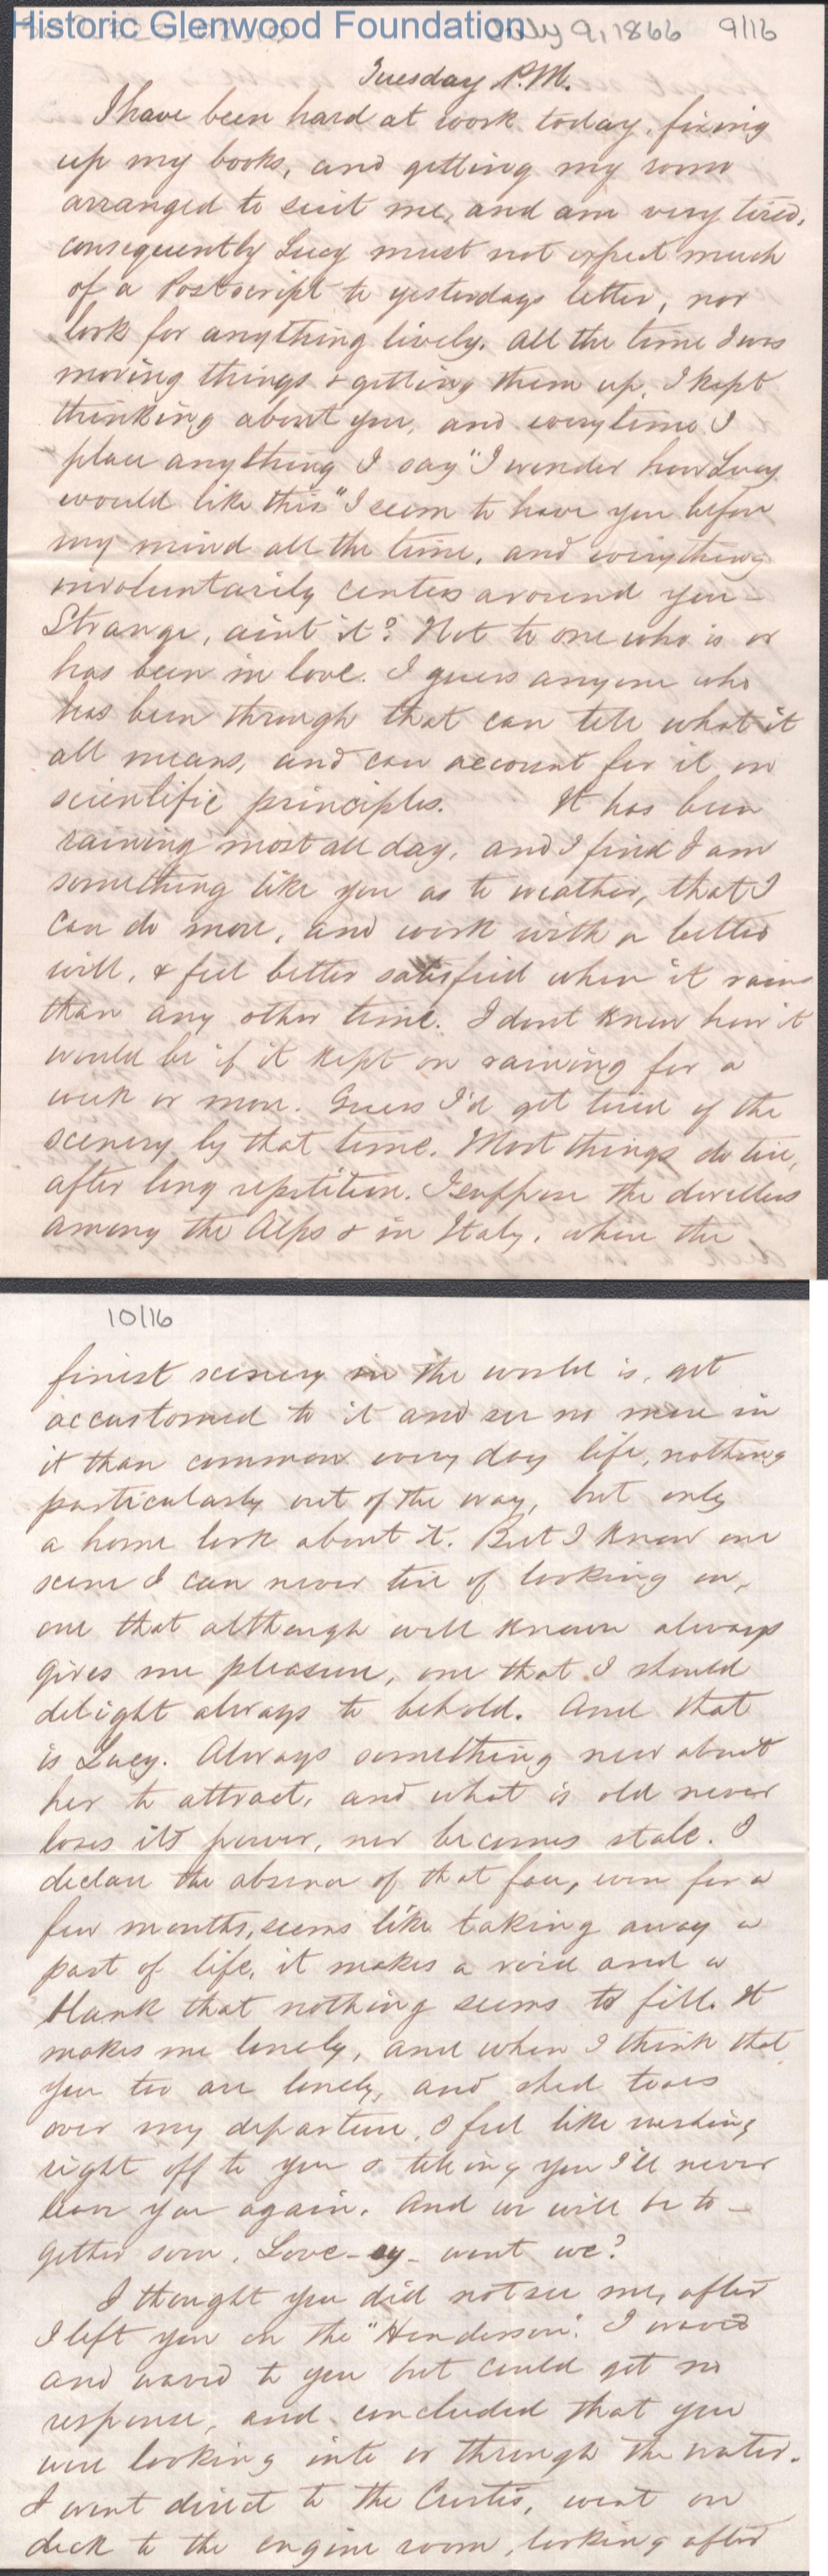 Historic Glenwood Foundation
July 9, 1866 9/16
Tuesday P.M.
I have been hard at work today, fixing
up my books, and getting my room
arranged to suit me, and am very tired,
consequently Lucy must not expect much
of a Postscript to yesterdays letter, nor
look for anything lively. All the time I was
moving things & getting them up, I kept
thinking about you, and everytime I
place anything I say "I wonder how Lucy
would like this" I seem to have you before
my mind all the time, and everything
involuntarily centers around you -
Strange, aint it? Not to one who is or
has been in love. I guess anyone who
has been through that can tell what it
all means, and can account for it on
scientific principles. It has been
raining most all day, and I find I am
something like you as to weather, that I
can do more, and work with a better
will, & feel better satisfied when it rains
than any other time. I dont know how it
would be if it kept on raining for a
week or more. Guess I'd get tired of the
scenery by that time. Most things do tire,
after long repetition. I suppose the dwellers
among the Alps & in Italy, where the
10/16
finest scenery in the world is, get
accustomed to it and see no more in
it than common every day life, nothing
particularly out of the way, but only
a home look about it. But I know one
scene I can never tire of looking on,
one that although well known always
gives me pleasure, one that I should
delight always to behold. And that
is Lucy. Always something new about
her to attract, and what is old never
loses its power, nor becomes stale. I
declare the absence of that face, even for a
few months, seems like taking away a
part of life, it makes a void and a
blank that nothing seems to fill. It
makes me lonely, and when I think that
you too are lonely, and shed tears
over my departure, I feel like rushing
right off to you & telling you I'll never
leave you again. And we will be to-
gether soon, Love-ey- wont we?
I thought you did not see me, after
I left you on the "Henderson". I waved
and waved to you but could get no
response, and concluded that you
were looking into or through the water.
I went direct to the Curtis, went on
deck to the engine room, looking after